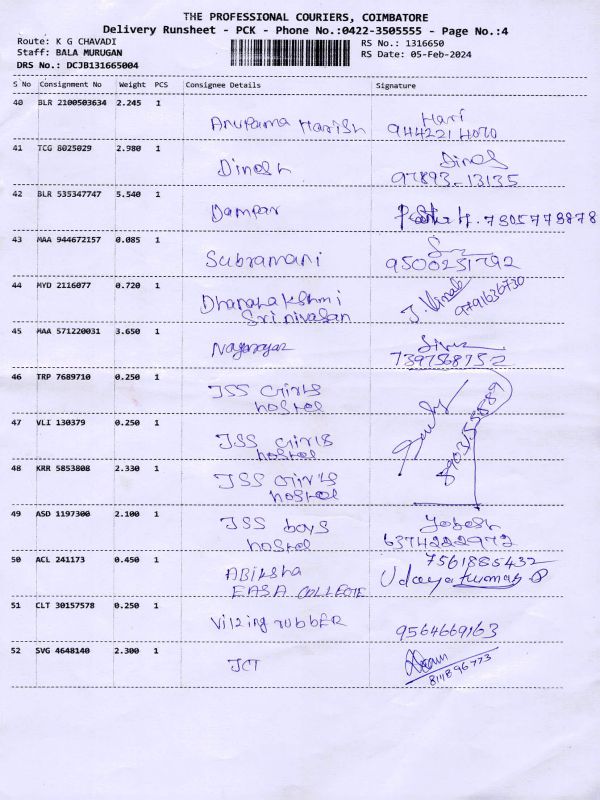 THE PROFESSIONAL COURIERS, COIMBATORE
Delivery Runsheet - PCK - Phone No.:0422-3505555 - Page No.:4
Route: K G CHAVADI
RS No.: 1316650
Staff: BALA MURUGAN
RS Date: 05-Feb-2024
DRS No.: DCJB131665004
S No Consignment No Weight PCS Consignee Details Signature
40 BLR 2100503634 2.245 1 Anupama Harish Hari
41 TCG 8025029 2.980 1 Dinesh Dines
97893-13135
42 BLR 535347747 5.540 1 Dampar 7305773878
43 MAA 944672157 0.085 1 Subramani
9500251792
44 MYD 2116077 0.720 1 Dhanalakshmi J. Vimal
Srinivasan 9791636730
45 MAA 571220031 3.650 1
7397568752
46 TRP 7689710 0.250 1 JSS Girls
hostel
47 VLI 130379 0.250 1 JSS Girls
hostel
8903155589
48 KRR 5853808 2.330 1 JSS Girls
hostel
49 ASD 1197300 2.100 1 JSS boys
hostel 6374222972
50 ACL 241173 0.450 1 7561885432
ABiksha Udayakumar
EASA COLLEGE
51 CLT 30157578 0.250 1 rubbER
9564669163
52 SVG 4648140 2.300 1 JCT
8111896773